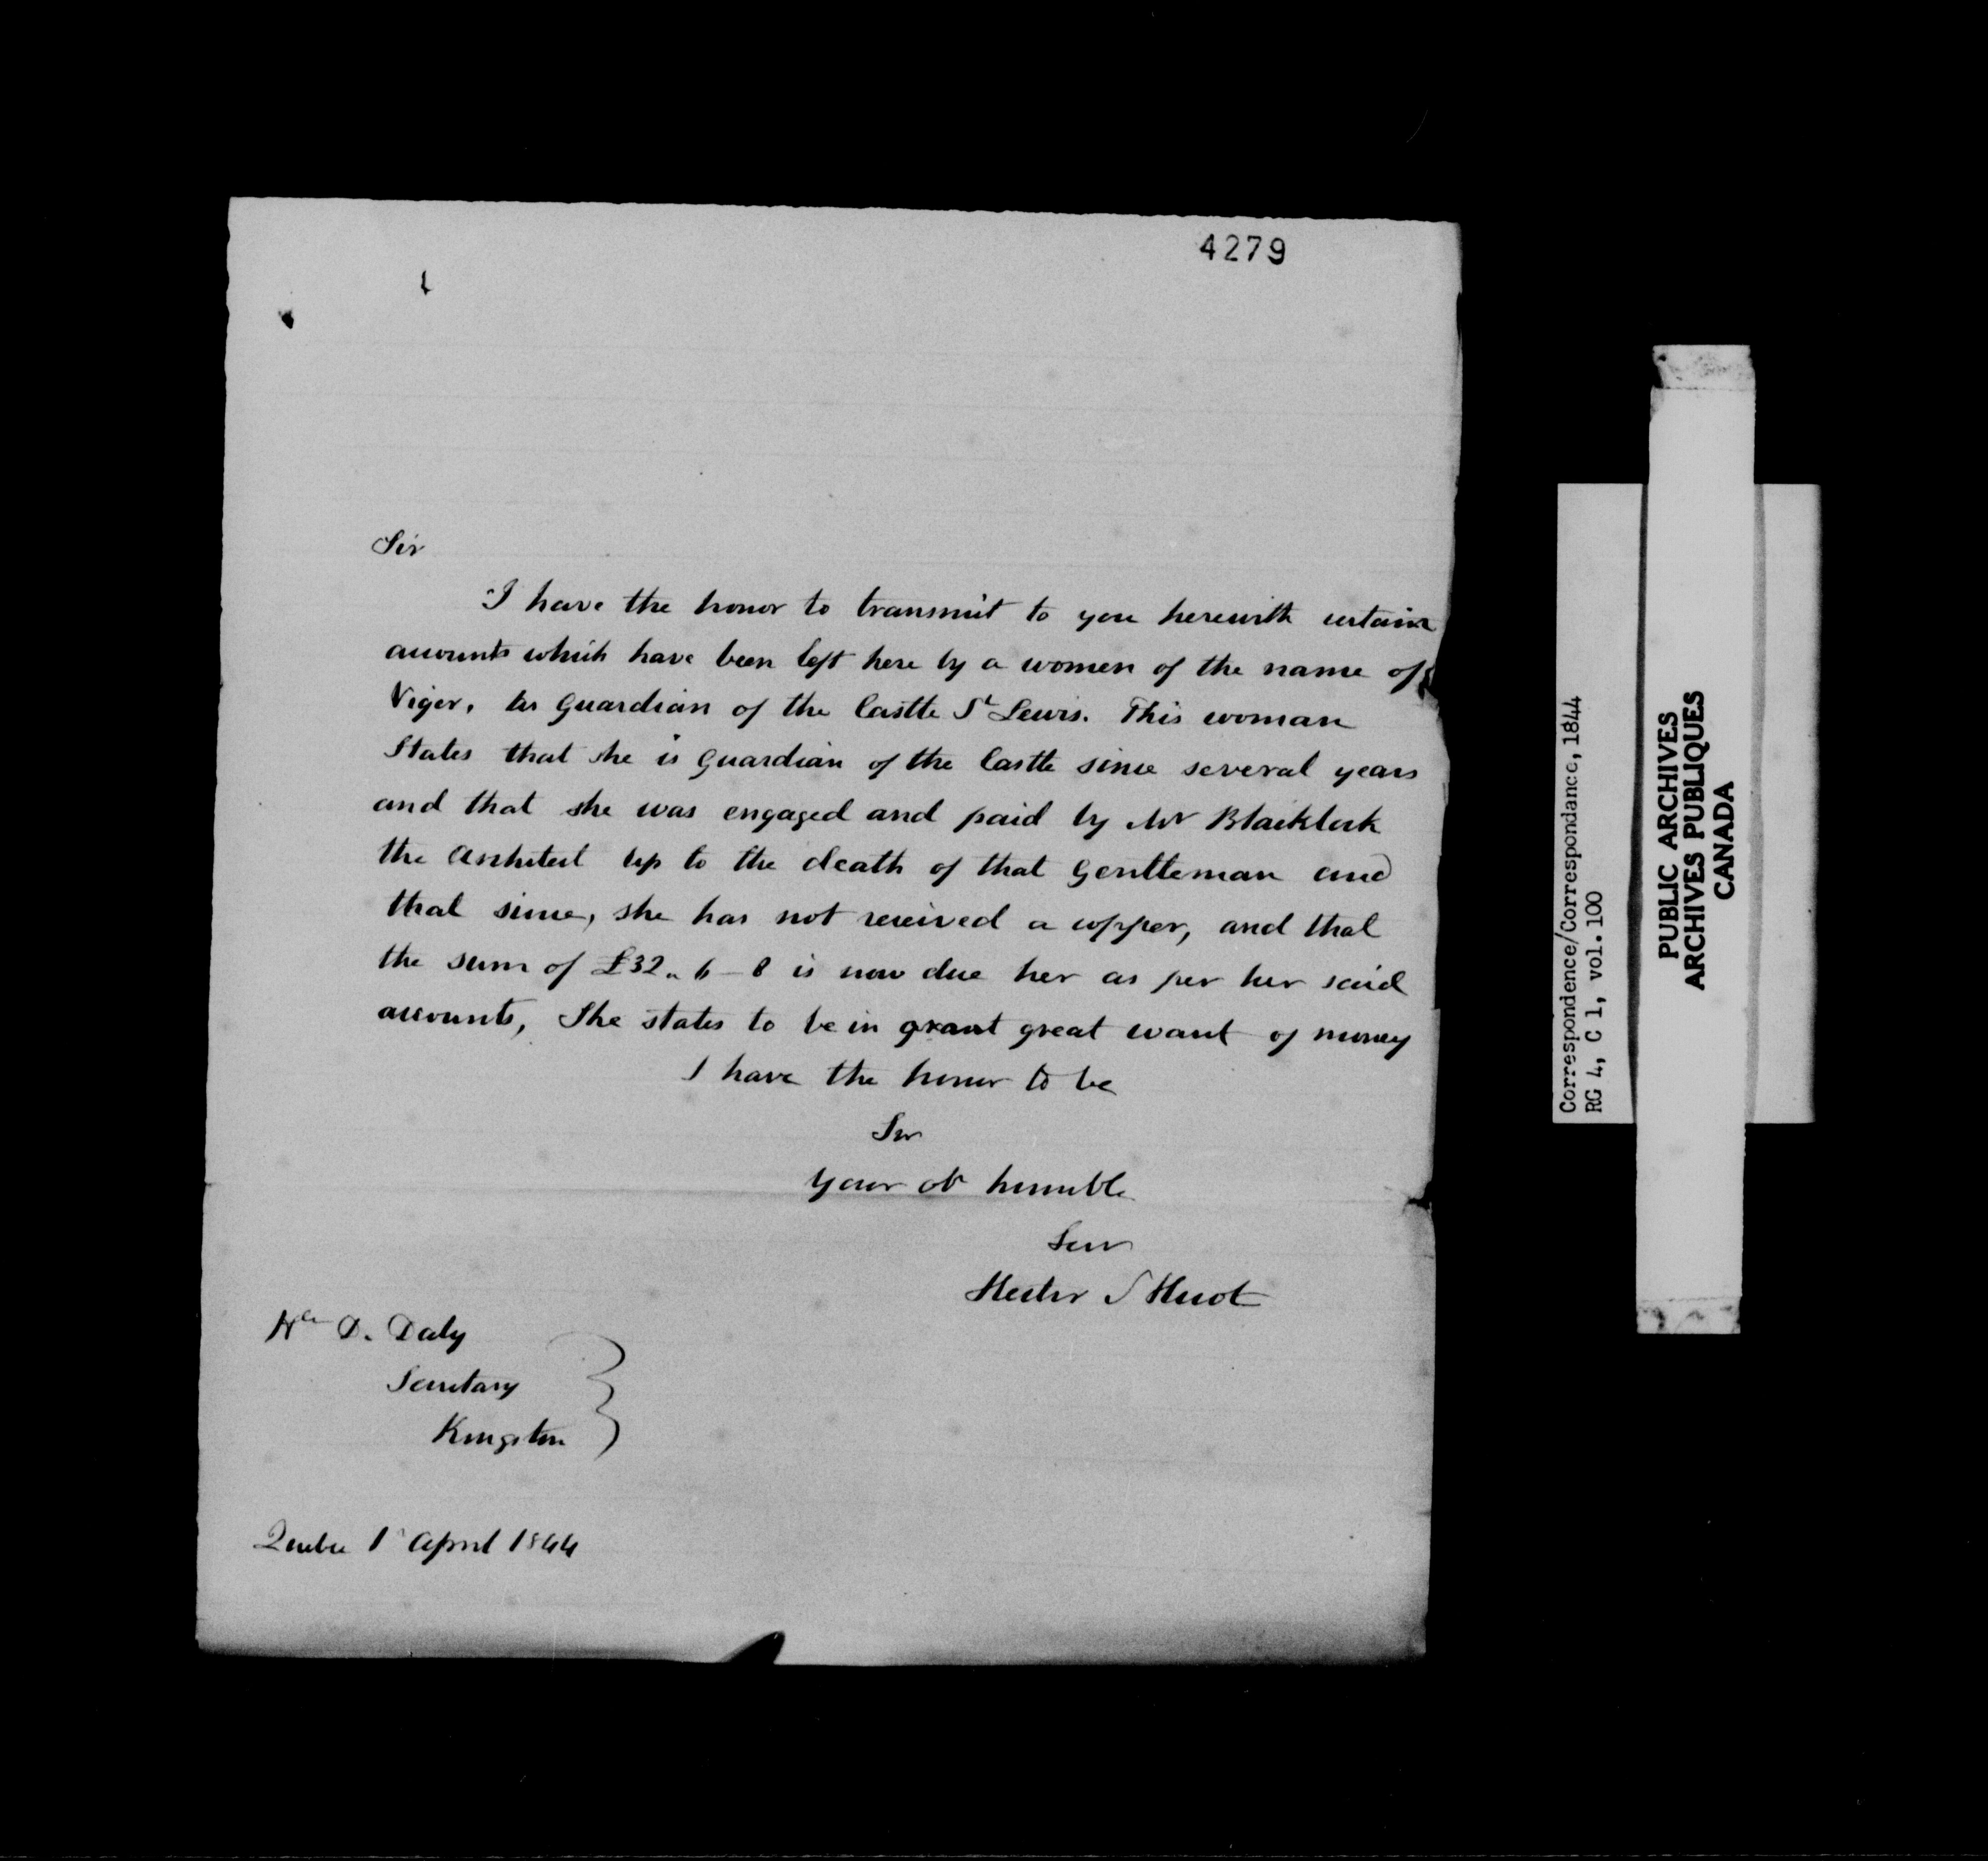 4279
Sir
I have the honor to transmit to you herewith certain
accounts which have been left here by a women of the name of
Viger, as Guardian of the Castle St Lewis. This woman
States that she is Guardian of the Castle since several years
and that she was engaged and paid by Mr Blaiklock
the Architect up to the death of that Gentleman and
that since, she has not received a copper, and that
the sum of £32 " 6 - 8 is now due her as per her said
accounts, She states to be in great want of money
I have the honor to be
Sir
Your ob humble
Serv
Hector S Huot
Hble D. Daly
Secretary
Kingston
Quebec 1 April 1844
Correspondence/Correspondance, 1844
RG 4, C 1, vol. 100
PUBLIC ARCHIVES
ARCHIVES PUBLIQUES
CANADA